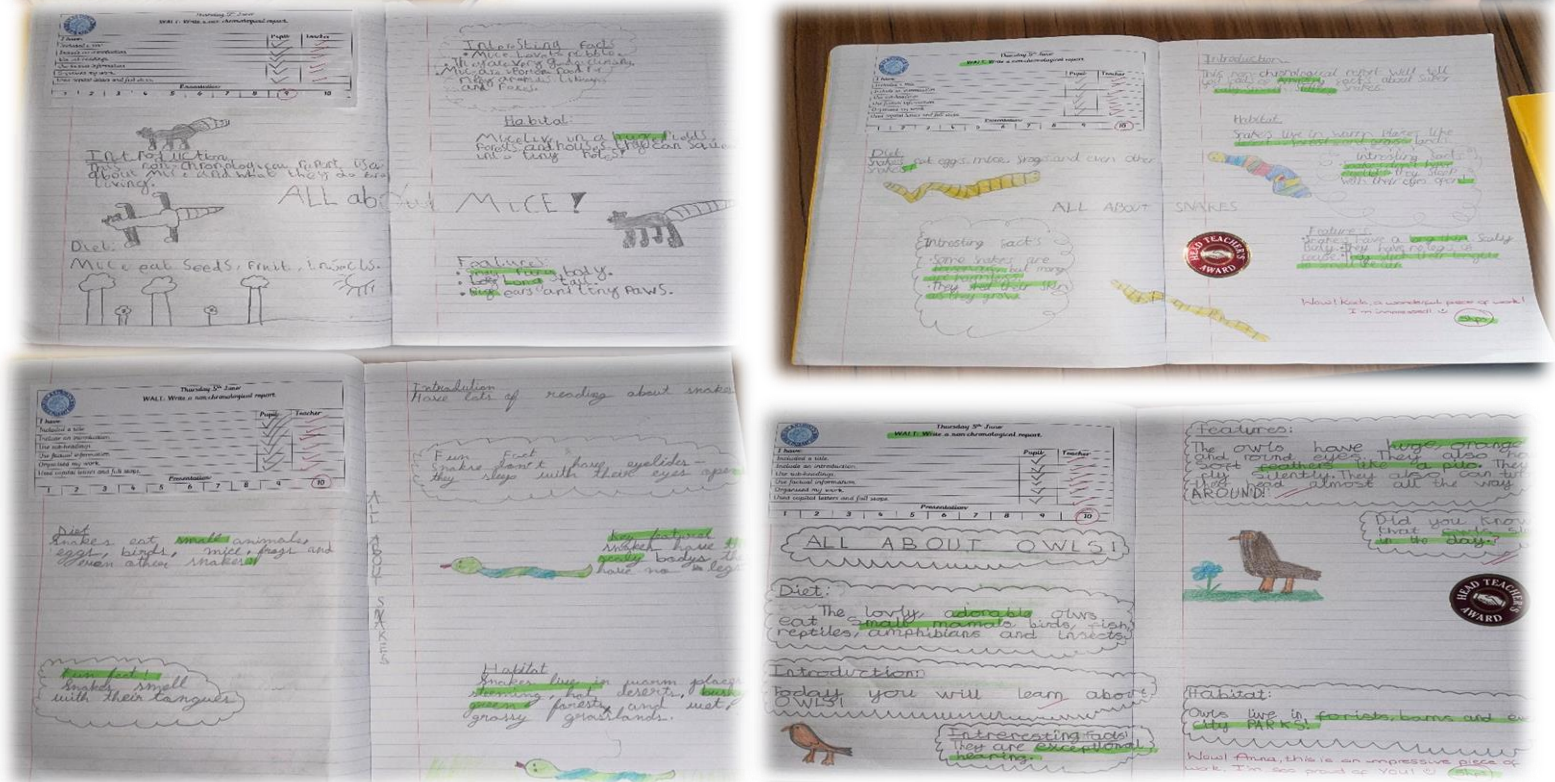 Thursday 5th June
WALT: Write a non chronological report.
I have:
Pupil
Teacher
Included a title.
Include an introduction.
Use sub-headings.
Use factual information.
Organised my work.
Used capital letters and full stops.
Presentation:
1 2 3 4 5 6 7 8 9 10
Introduction
This non-chronological report
about Mice and what they do
living.
ALL about MICE!
Diet:
Mice eat Seeds, Fruit, insects.
Interesting Facts
Mice Love to nibble
They are very good climbers
Habitat:
Mice Live in a huge, fields,
Forests and houses they can
tiny holes!
Features:
body.
long tail.
Big ears and tiny Paws.
Thursday 5th June
WALT: Write a non chronological report.
I have:
Pupil
Teacher
Included a title.
Include an introduction.
Use sub-headings.
Use factual information.
Organised my work.
Used capital letters and full stops.
Presentation:
1 2 3 4 5 6 7 8 9 10
Diet
Snakes eat eggs, mice, frogs and even other
snakes
ALL ABOUT SNAKES
Intresting facts
Some snakes are
but many
They shed their skin
as they grow
Introduction
This non-chronological report will tell
you facts about super
snakes.
Habitat
Snakes live in warm places like
Intresting facts
snakes don't have
eyelids they sleep
with their eyes open
Features
Snakes have a long thin scaly
body. They have no legs
HEAD TEACHER'S AWARD
Wow! a wonderful piece of work!
I'm impressed!
Thursday 5th June
WALT: Write a non chronological report.
I have:
Pupil
Teacher
Included a title.
Include an introduction.
Use sub-headings.
Use factual information.
Organised my work.
Used capital letters and full stops.
Presentation:
1 2 3 4 5 6 7 8 9 10
Diet
Snakes eat small animals,
eggs, birds, mice, frogs and
even other snakes
Fun fact!
Snakes smell
with their tongues
ALL ABOUT SNAKES
Introdution
Have lots of reading about snakes
Fun Fact
Snakes don't have eyelides
they sleep with their eyes open
key featurel
snakes have
scaly bodys
have no legs
Habitat
Snakes live in warm places
steaming, hot deserts,
green forests, and wet,
grassy grasslands.
Thursday 5th June
WALT: Write a non chronological report.
I have:
Pupil
Teacher
Included a title.
Include an introduction.
Use sub-headings.
Use factual information.
Organised my work.
Used capital letters and full stops.
Presentation:
1 2 3 4 5 6 7 8 9 10
ALL ABOUT OWLS!
Diet:
The lovly, adorable owls
eat small mamals birds, fish,
reptiles, amphibians and insects.
Introduction:
Today you will learn about
OWLS!
Intreresting facts!
They are exceptional
hearing.
Features:
The owls have huge, orange
and round eyes. They also have
soft feathers like a pilo. They
fly silently. They also can turn
head almost all the way
AROUND!
Did you know
that
in the day?
HEAD TEACHER'S AWARD
Habitat:
Owls live in forists, barns and
city PARKS!
Wow! Anna, this is an impressive piece of
work, I'm soo proud of you!